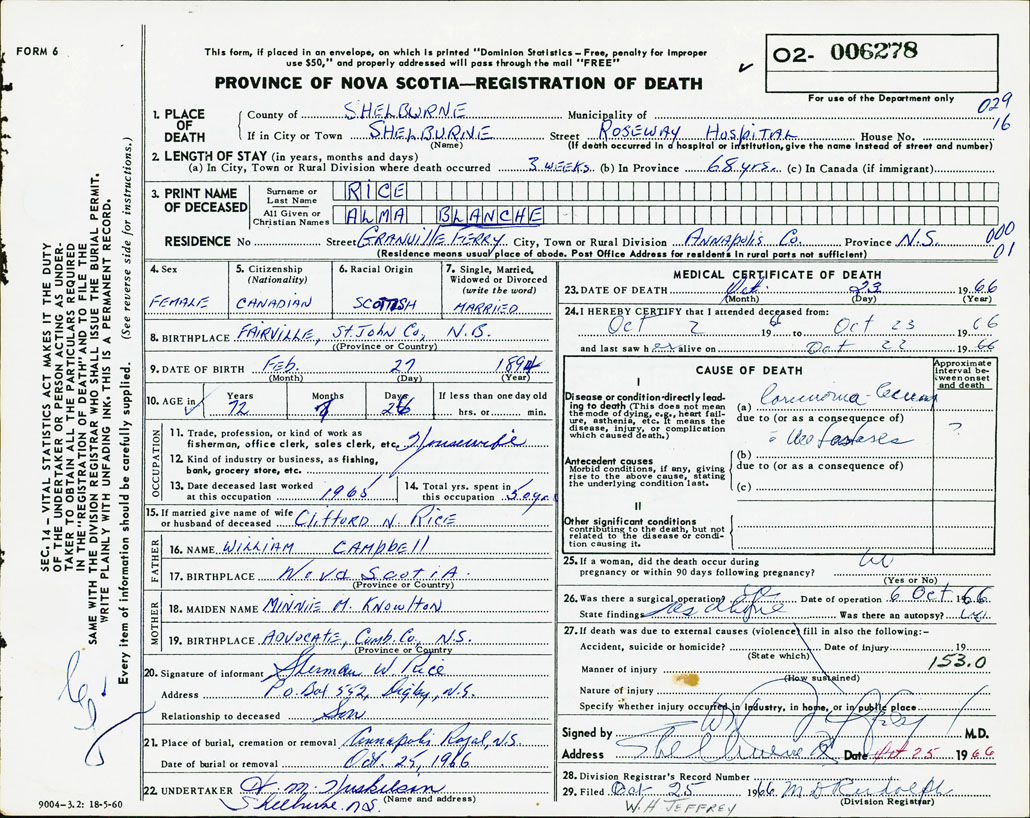 FORM 6
This form, if placed in an envelope, on which is printed "Dominion Statistics – Free, penalty for improper
use $50," and properly addressed will pass through the mail "FREE"
PROVINCE OF NOVA SCOTIA—REGISTRATION OF DEATH
✓
O2- 006278
For use of the Department only
029
16
1. PLACE OF DEATH
County of SHELBURNE Municipality of
If in City or Town SHELBURNE Street ROSEWAY HOSPITAL House No.
(Name) (If death occurred in a hospital or institution, give the name instead of street and number)
2. LENGTH OF STAY (in years, months and days)
(a) In City, Town or Rural Division where death occurred 3 WEEKS (b) In Province 68 yrs. (c) In Canada (if immigrant)
3. PRINT NAME OF DECEASED
Surname or Last Name RICE
All Given or Christian Names ALMA BLANCHE
RESIDENCE No Street GRANVILLE FERRY City, Town or Rural Division ANNAPOLIS Co. Province N.S.
(Residence means usual place of abode. Post Office Address for residents in rural parts not sufficient)
000
01
4. Sex FEMALE
5. Citizenship (Nationality) CANADIAN
6. Racial Origin SCOTTISH
7. Single, Married, Widowed or Divorced (write the word) MARRIED
8. BIRTHPLACE FAIRVILLE, St. John Co., N.B.
(Province or Country)
9. DATE OF BIRTH Feb. 27 1894
(Month) (Day) (Year)
10. AGE in Years 72 Months Days 26 If less than one day old
hrs. or min.
OCCUPATION
11. Trade, profession, or kind of work as
fisherman, office clerk, sales clerk, etc. Housewife
12. Kind of industry or business, as fishing,
bank, grocery store, etc.
13. Date deceased last worked at this occupation 1965
14. Total yrs. spent in this occupation 50 yrs
15. If married give name of wife
or husband of deceased Clifford N. Rice
FATHER
16. NAME WILLIAM CAMPBELL
17. BIRTHPLACE Nova Scotia
(Province or Country)
MOTHER
18. MAIDEN NAME MINNIE M. KNOWLTON
19. BIRTHPLACE ADVOCATE, Cumb. Co., N.S.
(Province or Country
20. Signature of informant Sherman W. Rice
Address P.O. Box 592, Digby, N.S.
Relationship to deceased Son
21. Place of burial, cremation or removal Annapolis Royal, N.S.
Date of burial or removal Oct. 25, 1966
22. UNDERTAKER H. M. Huskilson
(Name and address)
Shelburne N.S.
9004—3.2: 18-5-60
MEDICAL CERTIFICATE OF DEATH
23. DATE OF DEATH Oct 23 1966
(Month) (Day) (Year)
24. I HEREBY CERTIFY that I attended deceased from:
Oct 2 1966 to Oct 23 1966
and last saw her alive on Oct 22 1966
CAUSE OF DEATH
Approximate interval between onset and death
I
Disease or condition directly leading to death (This does not mean
the mode of dying, e.g., heart failure, asthenia, etc. It means the
disease, injury, or complication
which caused death.)
(a) Carcinoma Cecum
due to (or as a consequence of)
Metastases ?
Antecedent causes
Morbid conditions, if any, giving
rise to the above cause, stating
the underlying condition last.
(b)
due to (or as a consequence of)
(c)
II
Other significant conditions
contributing to the death, but not
related to the disease or condition
causing it.
25. If a woman, did the death occur during
pregnancy or within 90 days following pregnancy? No
(Yes or No)
26. Was there a surgical operation? Date of operation 6 Oct 1966
State findings as above Was there an autopsy? No
27. If death was due to external causes (violence) fill in also the following:–
Accident, suicide or homicide? Date of injury 19
(State which)
153.0
Manner of injury
(How sustained)
Nature of injury
Specify whether injury occurred in industry, in home, or in public place
Signed by M.D.
Address Shelburne Date Oct 25 1966
28. Division Registrar's Record Number
29. Filed Oct 25 1966 M D Rudolph
(Division Registrar)
W.H JEFFREY
SEC. 14 – VITAL STATISTICS ACT MAKES IT THE DUTY
OF THE UNDERTAKER OR PERSON ACTING AS UNDER-
TAKER TO OBTAIN ALL THE PARTICULARS REQUIRED
IN THE "REGISTRATION OF DEATH" AND TO FILE THE
SAME WITH THE DIVISION REGISTRAR WHO SHALL ISSUE THE BURIAL PERMIT.
WRITE PLAINLY WITH UNFADING INK. THIS IS A PERMANENT RECORD.
Every item of information should be carefully supplied. (See reverse side for instructions.)